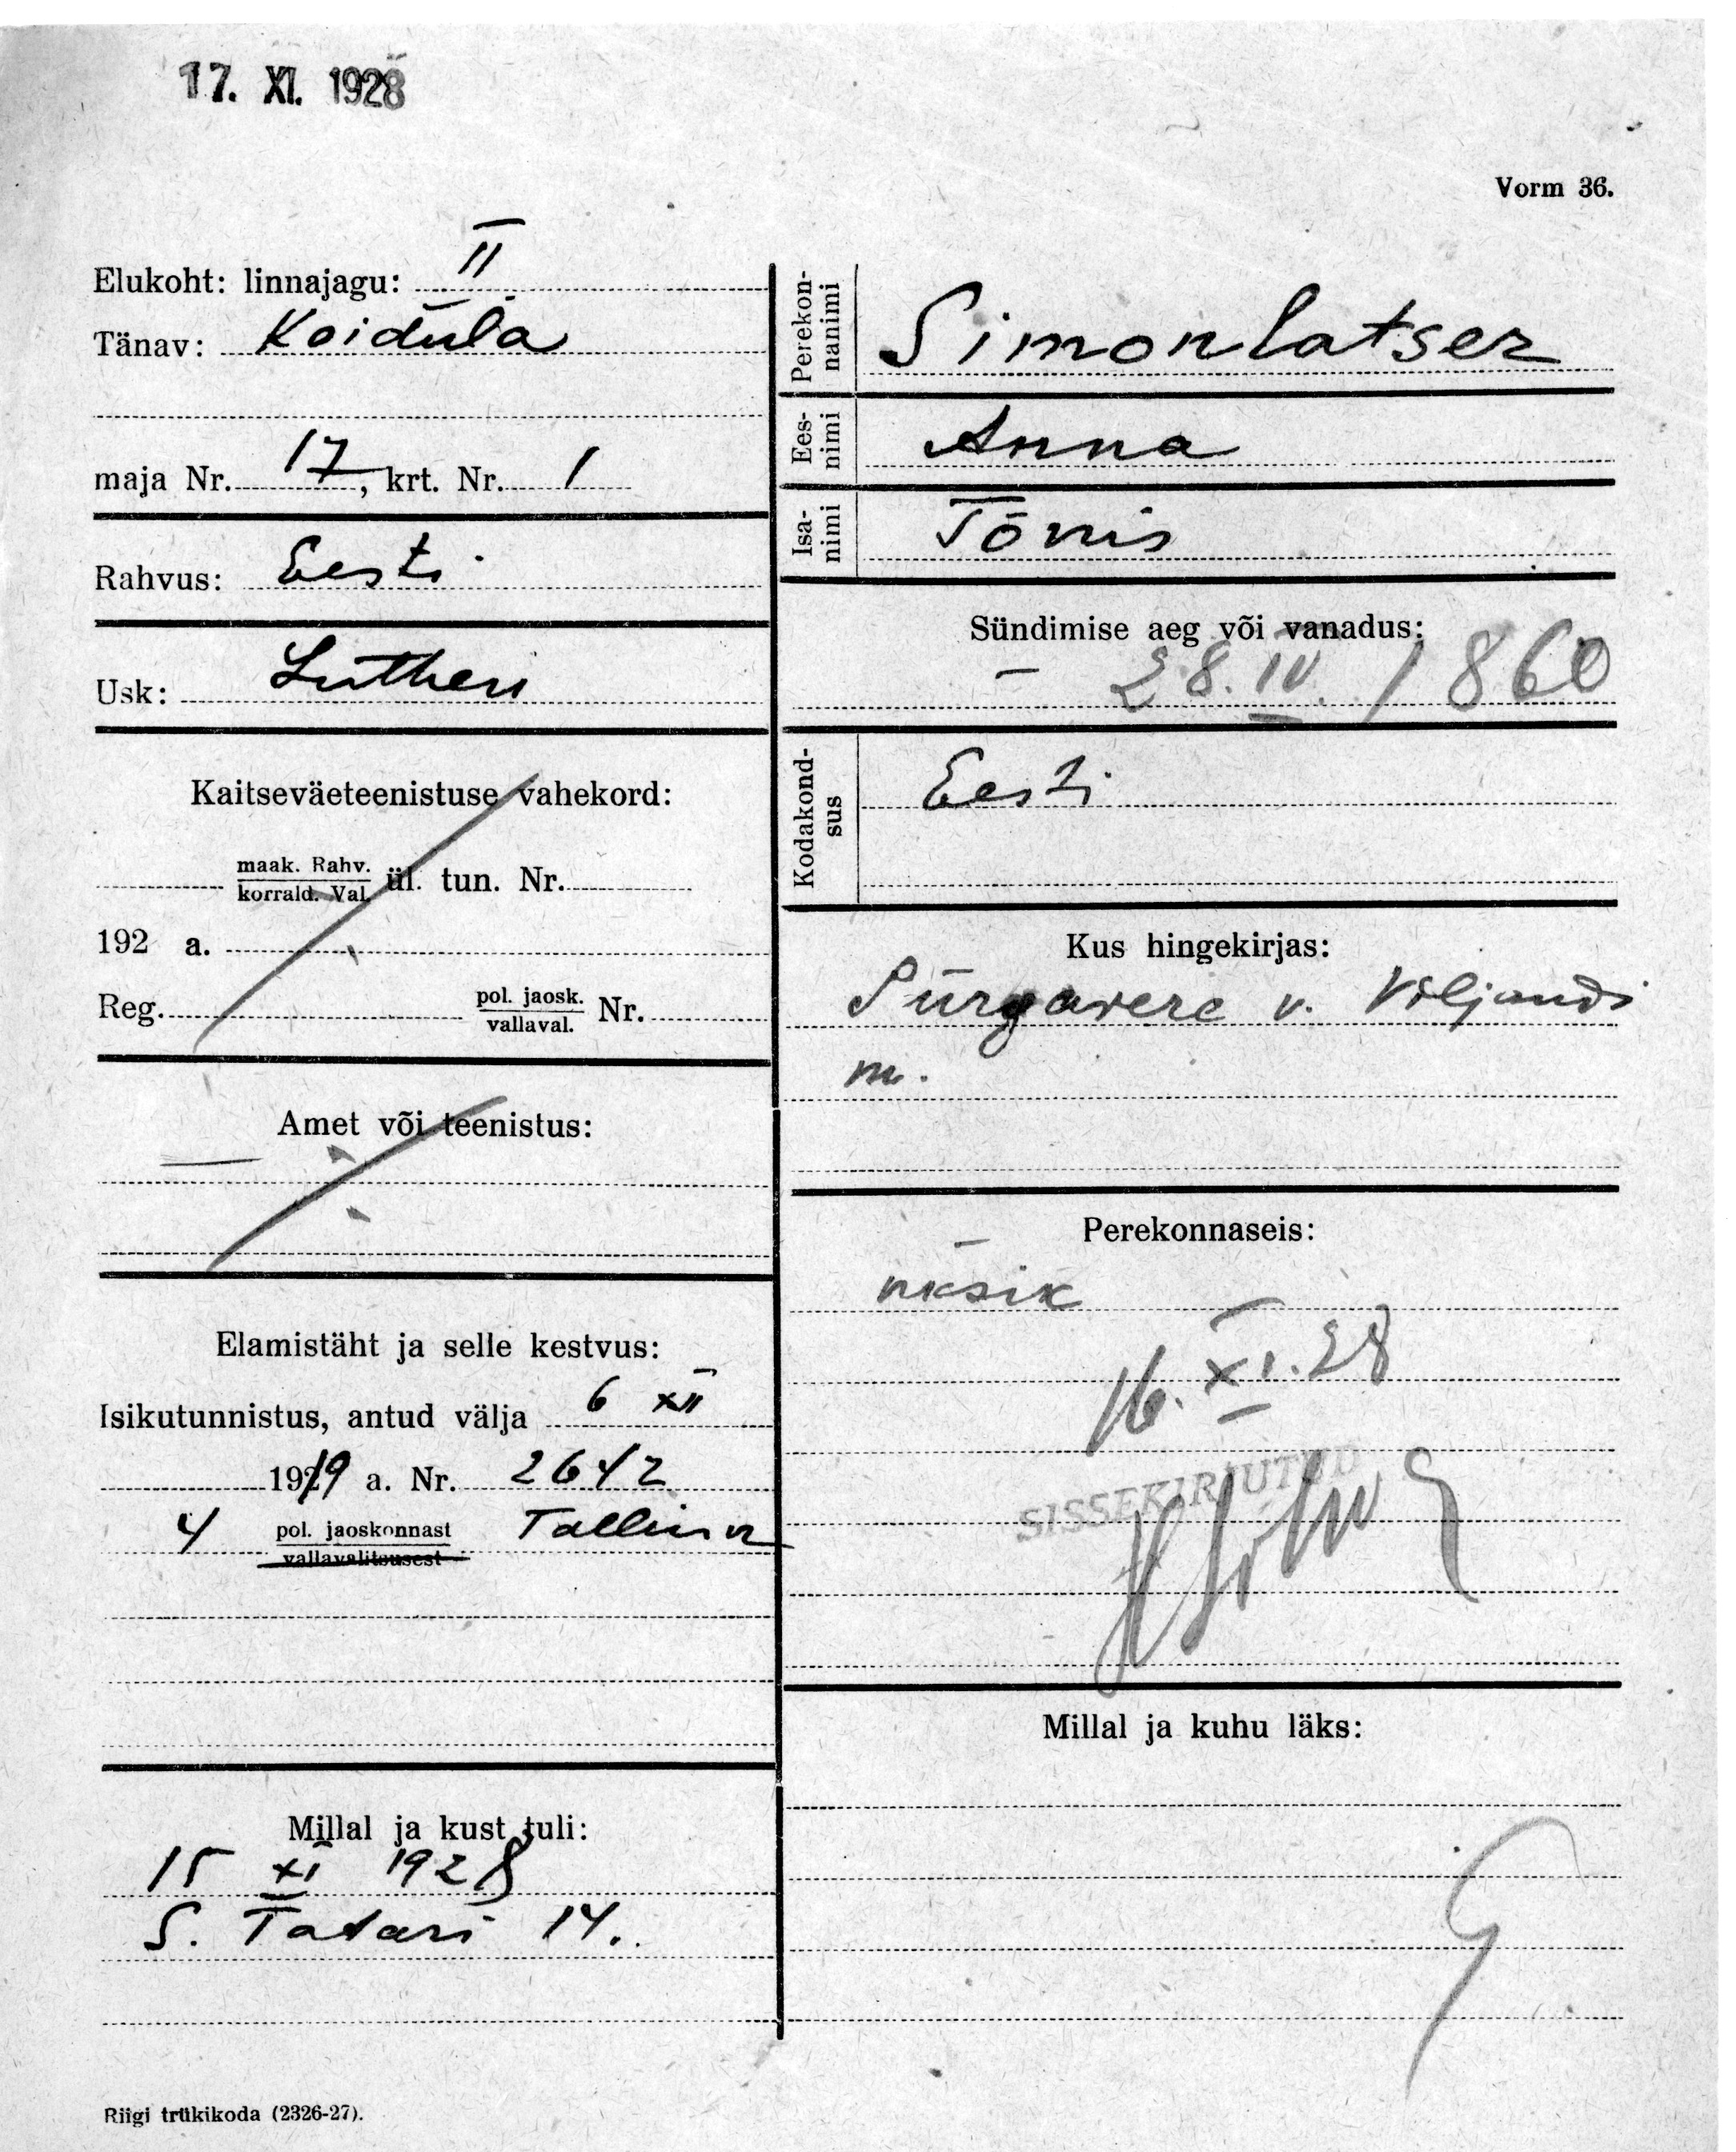 17. XI. 1928
Vorm 36.
Elukoht: linnajagu: II
Tänav: Koidula
maja Nr. 17, krt. Nr. 1
Rahvus: Eesti
Usk: Lutheri
Kaitseväeteenistuse vahekord:
maak. Rahv.
korrald. Val. ül. tun. Nr.
192 a.
Reg. pol. jaosk.
vallaval. Nr.
Amet või teenistus:
Elamistäht ja selle kestvus:
Isikutunnistus, antud välja 6 XII
1919 a. Nr. 2642
4 pol. jaoskonnast Tallinn
vallavalitsusest
Millal ja kust tuli:
15 XI 1928
S. Tatari 14.
Riigi trükikoda (2326-27).
Perekon-
nanimi
Simonlatser
Ees-
nimi
Anna
Isa-
nimi
Tõnis
Sündimise aeg või vanadus:
28. IV. 1860
Kodakond-
sus
Eesti
Kus hingekirjas:
Pürgavere v. Viljandi
m.
Perekonnaseis:
üksik
16. XI. 28
SISSEKIRJUTUD
Millal ja kuhu läks: